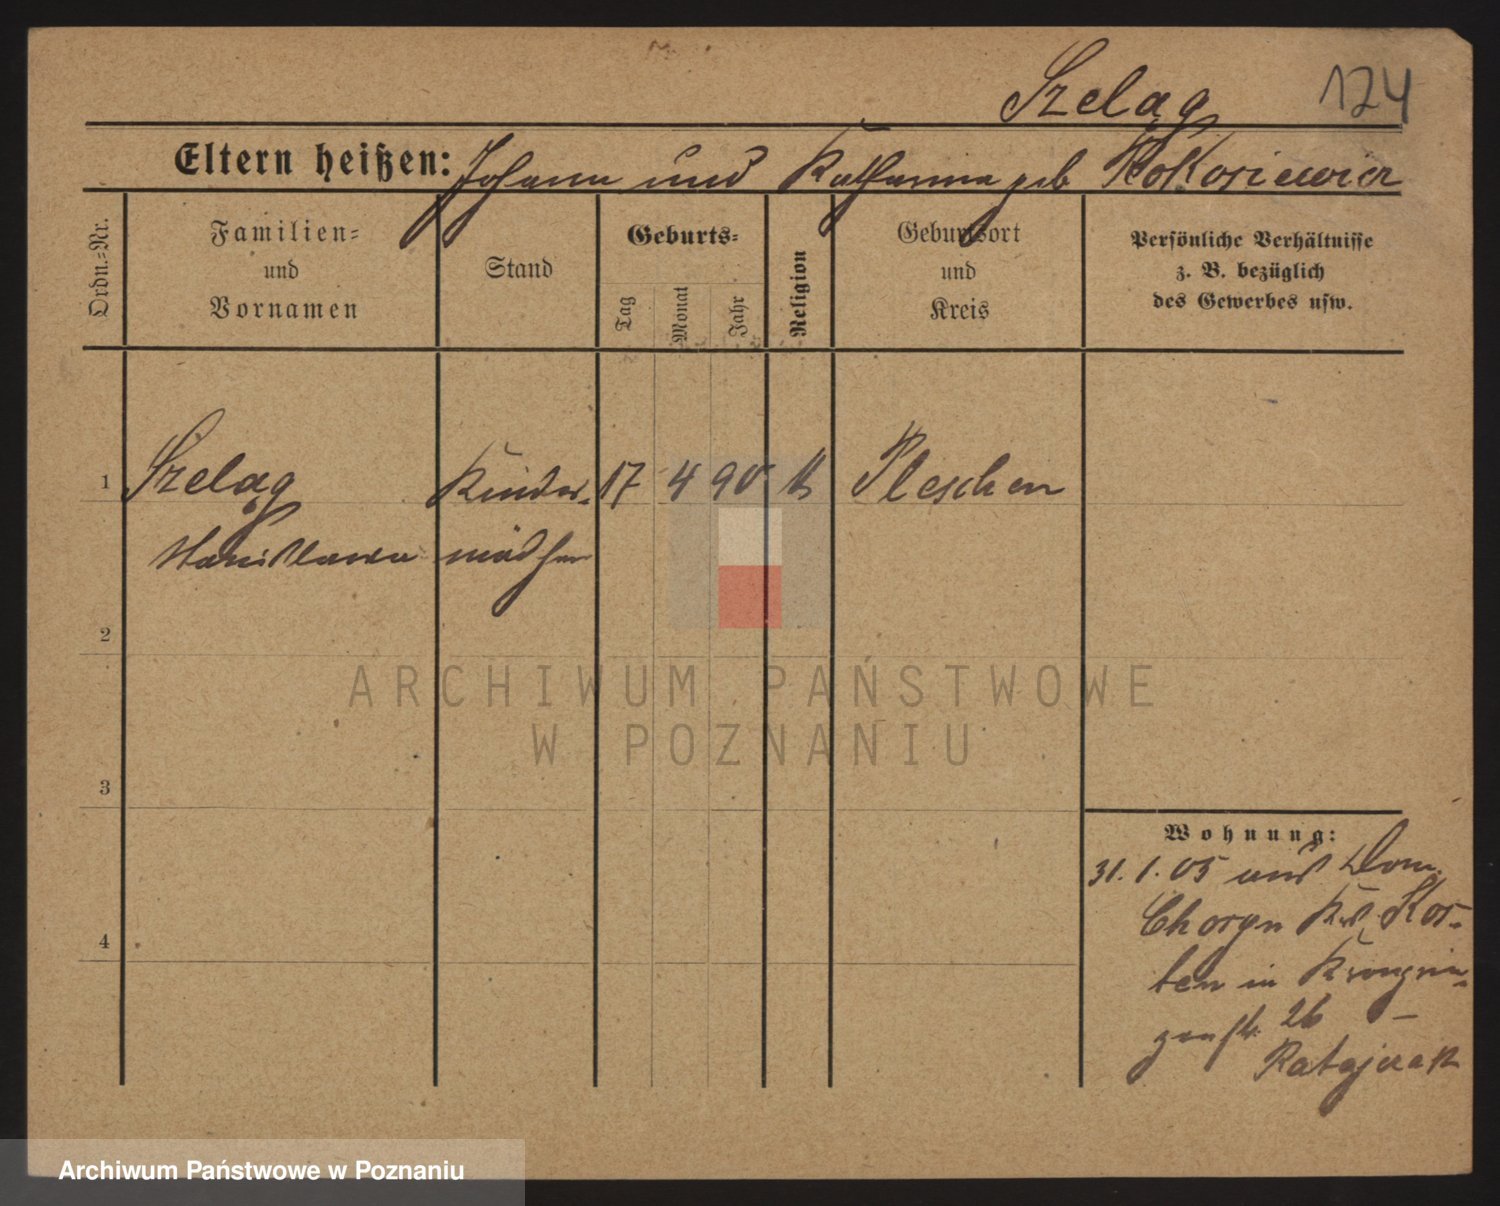 Szeląg 124
Eltern heißen: Johann und Katharina geb Kokoriewicz
Ordn.-Nr.
Familien-
und
Vornamen
Stand
Geburts-
Tag
Monat
Jahr
Religion
Geburtsort
und
Kreis
Persönliche Verhältnisse
z. B. bezüglich
des Gewerbes usw.
1 Szeląg Kinder- 17 4 90 k Pleschen
Stanislawa mädchen
2
3
4
Wohnung:
31. 1. 05 aus Dom.
Choryn Krs. Kos-
ten in Kronprin-
zenstr. 26 –
Ratajczak
ARCHIWUM PAŃSTWOWE
W POZNANIU
Archiwum Państwowe w Poznaniu